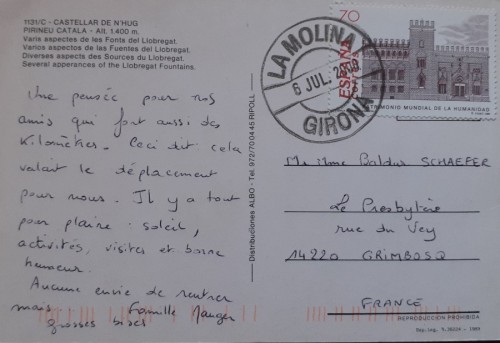 1131/C - CASTELLAR DE N'HUG
PIRINEU CATALA - Alt. 1.400 m.
Varis aspectes de les Fonts del Llobregat.
Varios aspectos de las Fuentes del Llobregat.
Diverses aspects des Sources du Llobregat.
Several apperances of the Llobregat Fountains.
Une pensée pour nos
amis qui font aussi des
Kilomètres. Ceci dit cela
valait le déplacement
pour nous. Il y a tout
pour plaire : soleil,
activités, visites et bonne
humeur.
Aucune envie de rentrer
mais Famille Mauger
grosses bises
Distribuciones ALBO - Tel. 972/70 04 45 RIPOLL
LA MOLINA
6 JUL.
GIRONA
70
ESPAÑA
CORREOS
PATRIMONIO MUNDIAL DE LA HUMANIDAD
SCHAEFER
Le Presbytère
rue du Vey
14220 GRIMBOSQ
FRANCE
REPRODUCCION PROHIBIDA